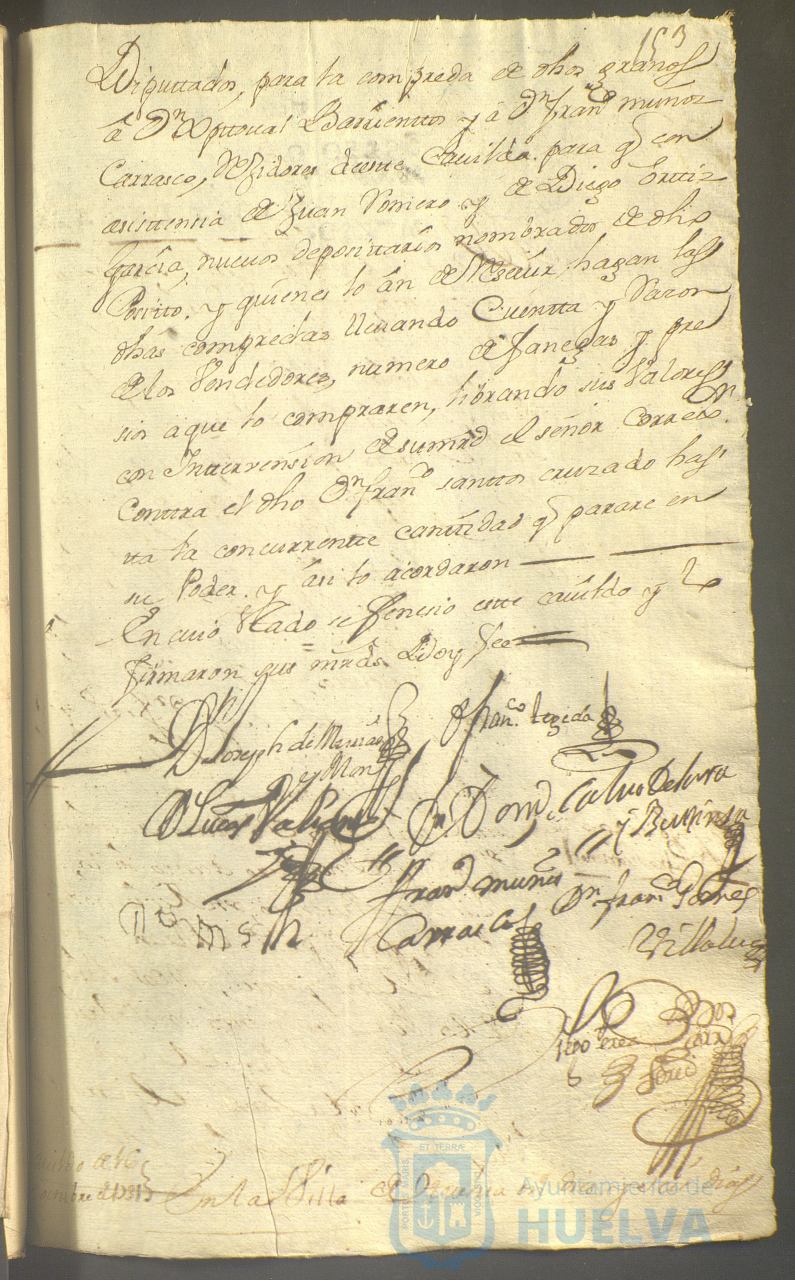 153
Diputtados, para la compreda de dhos granos
â Dn Xpttoval Barrienttos y â Dn Franco muñoz
Carrasco, Rexidores deeste Cavildo para q con
asisttensia de Juan Romero y de Diego Orttiz
Garcia, nuevos deposittarios nombrados de dho
Posito. y quienes lo ân de Resevir, hagan las
dhas compredas llevando Cuentta y Razon
de los Vendedores, numero de fanegas y pre
sios a que lo compraren, librando sus Valores
con Inttervension de sumrd el señor Correxor
Conttra el dho Dn Franco santtos cruzado has
tta la concurrentte canttidad q parare en
su Poder. y âsi lo acordaron
En cuio esttado se fenesio estte cavildo y lo
firmaron sus mrds. Doy fee
Dn Joseph de
y Mon
Dn Franco texeda
Dn Domo Calvo Delara
y
Franco muñoz
Carrasco
Dn Franco Gomes
Villalva
En la Villa de Huelva en dies y dias
ET TERRAE
Ayuntamiento de
HUELVA